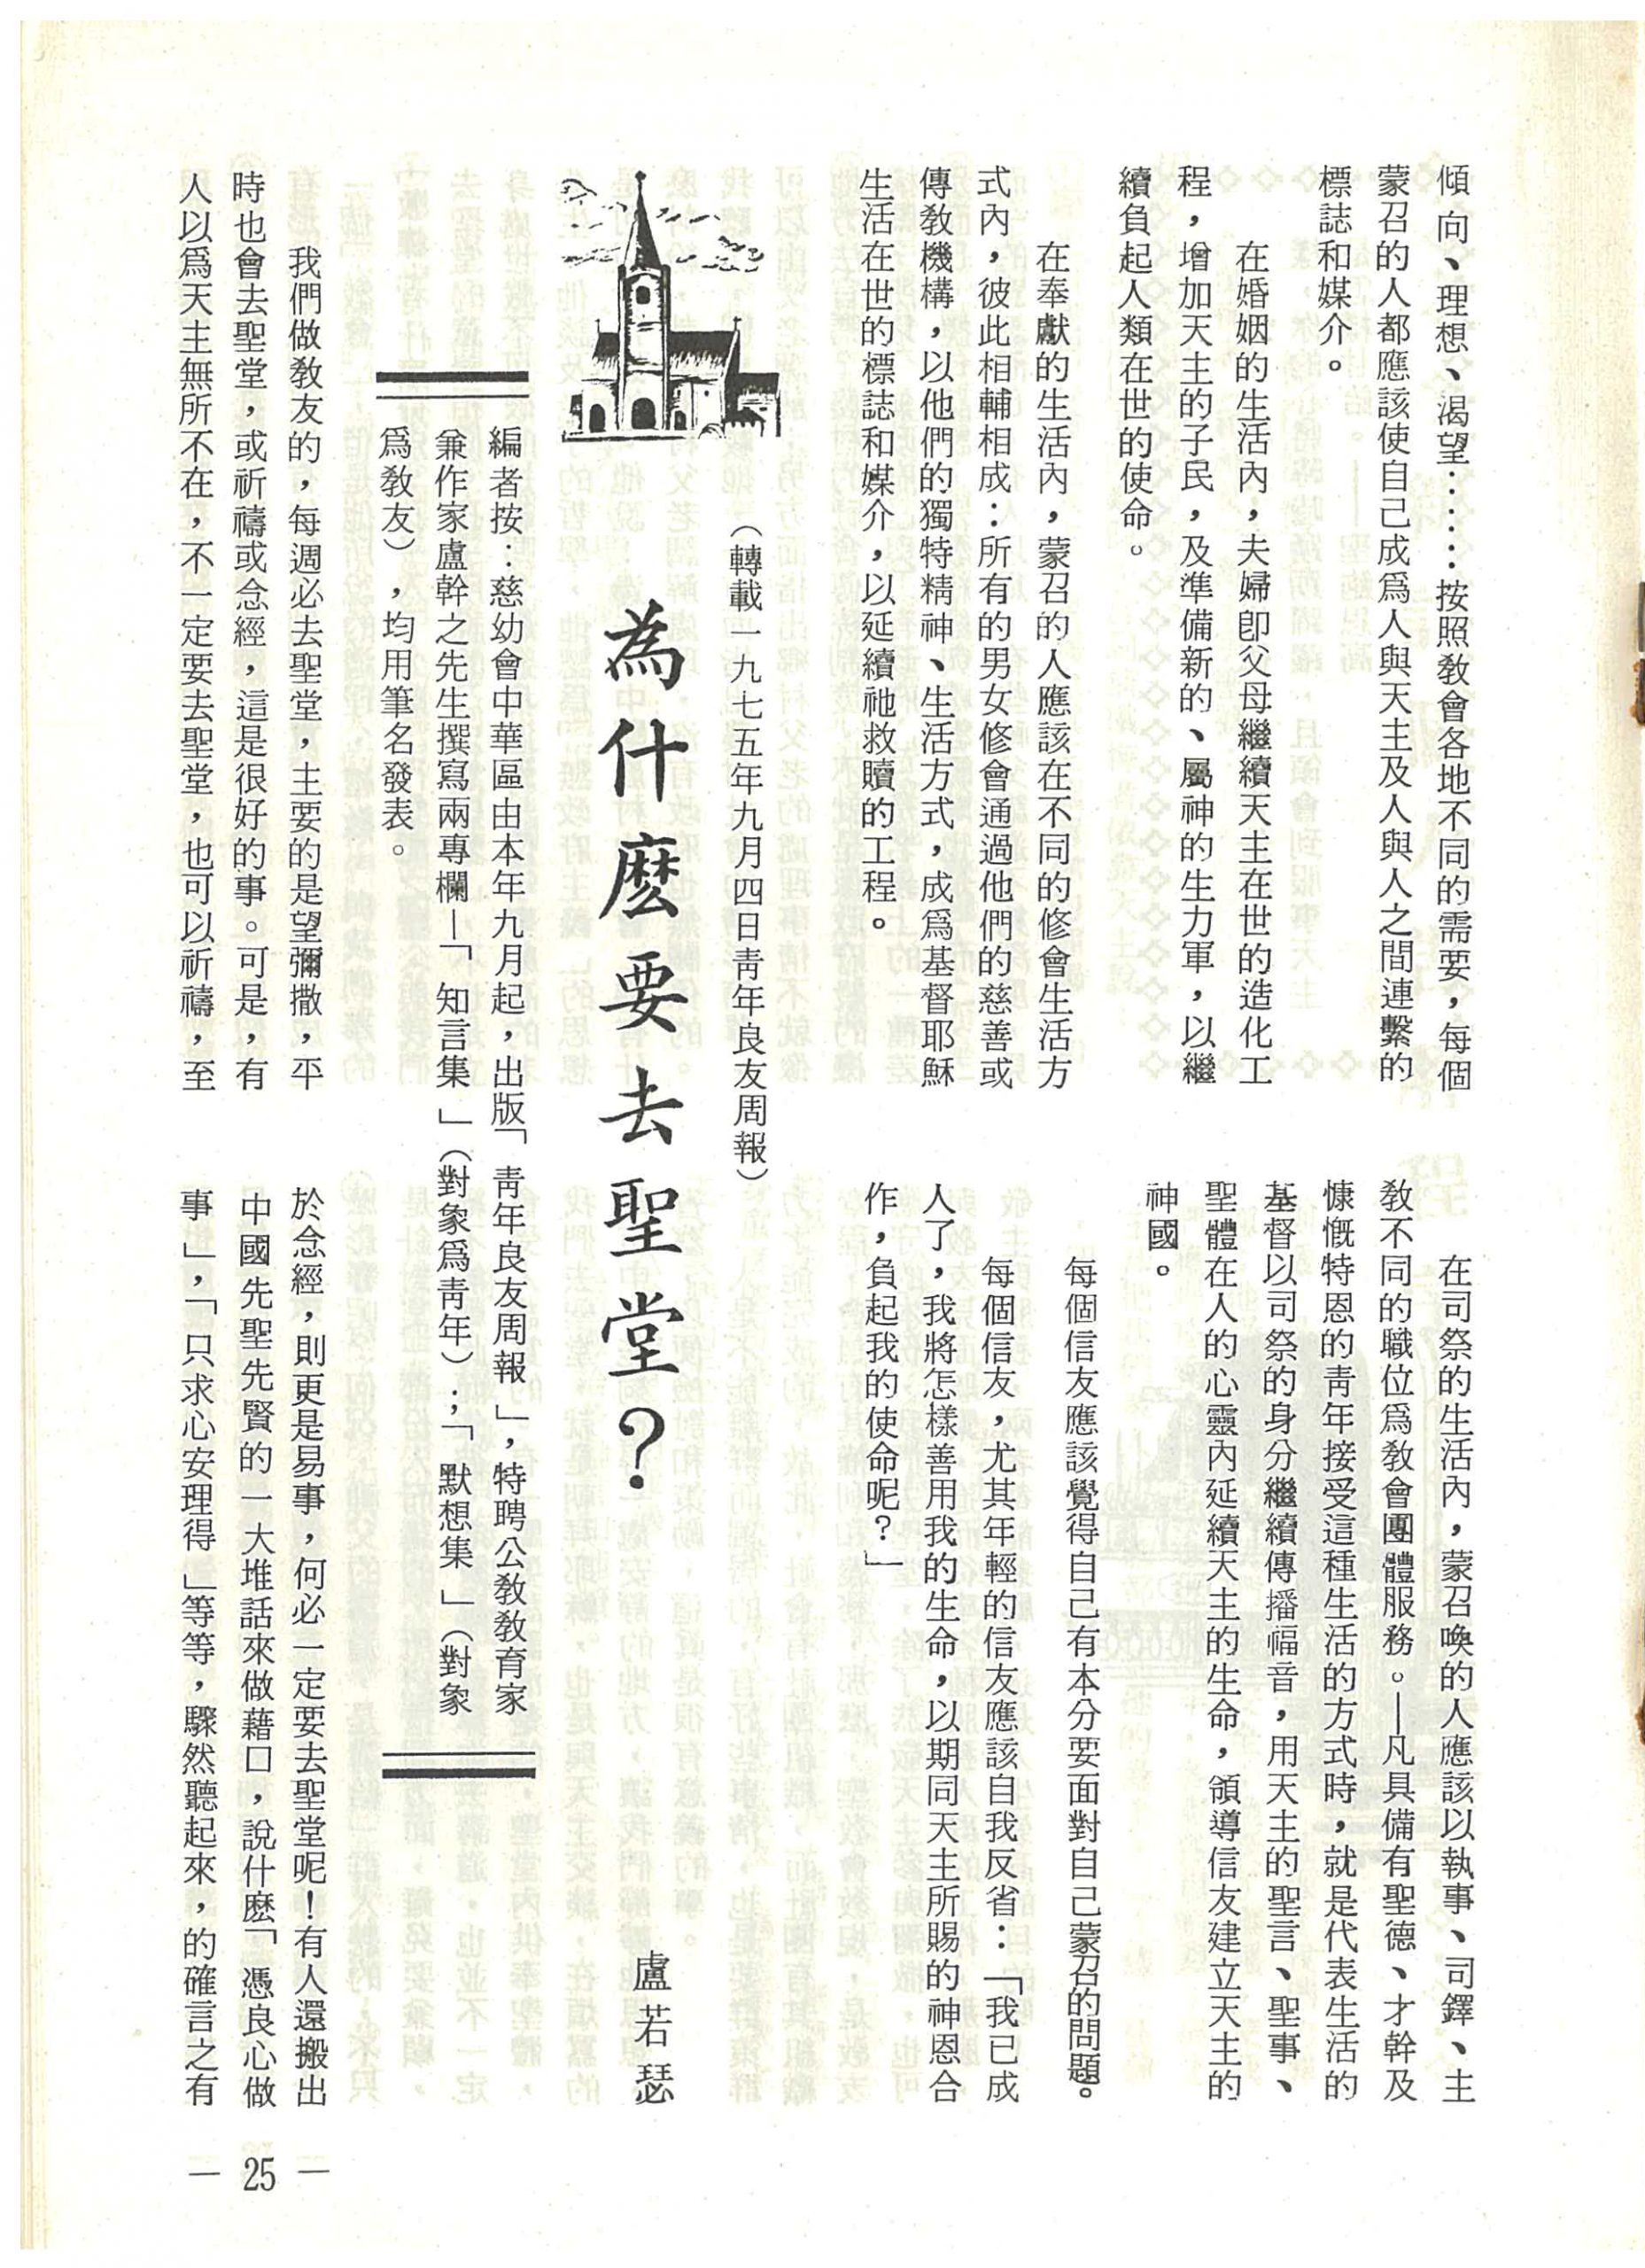 傾向、理想、渴望……按照敎會各地不同的需要，每個
蒙召的人都應該使自己成爲人與天主及人與人之間連繫的
標誌和媒介。
在婚姻的生活內，夫婦卽父母繼續天主在世的造化工
程，增加天主的子民，及準備新的、屬神的生力軍，以繼
續負起人類在世的使命。
在奉獻的生活內，蒙召的人應該在不同的修會生活方
式內，彼此相輔相成：所有的男女修會通過他們的慈善或
傳敎機構，以他們的獨特精神、生活方式，成爲基督耶穌
生活在世的標誌和媒介，以延續祂救贖的工程。
在司祭的生活內，蒙召喚的人應該以執事、司鐸、主
敎不同的職位爲敎會團體服務。—凡具備有聖德、才幹及
慷慨特恩的靑年接受這種生活的方式時，就是代表生活的
基督以司祭的身分繼續傳播福音，用天主的聖言、聖事、
聖體在人的心靈內延續天主的生命，領導信友建立天主的
神國。
每個信友應該覺得自己有本分要面對自己蒙召的問題。
每個信友，尤其年輕的信友應該自我反省：「我已成
人了，我將怎樣善用我的生命，以期同天主所賜的神恩合
作，負起我的使命呢？」
（轉載一九七五年九月四日靑年良友周報）
為什麽要去聖堂？
盧若瑟
編者按：慈幼會中華區由本年九月起，出版「靑年良友周報」，特聘公敎敎育家
兼作家盧幹之先生撰寫兩專欄—「知言集」（對象爲靑年）；「默想集」（對象
爲敎友），均用筆名發表。
我們做敎友的，每週必去聖堂，主要的是望彌撒，平
時也會去聖堂，或祈禱或念經，這是很好的事。可是，有
人以爲天主無所不在，不一定要去聖堂，也可以祈禱，至
於念經，則更是易事，何必一定要去聖堂呢！有人還搬出
中國先聖先賢的一大堆話來做藉口，說什麽「憑良心做
事」，「只求心安理得」等等，驟然聽起來，的確言之有
— 25 —